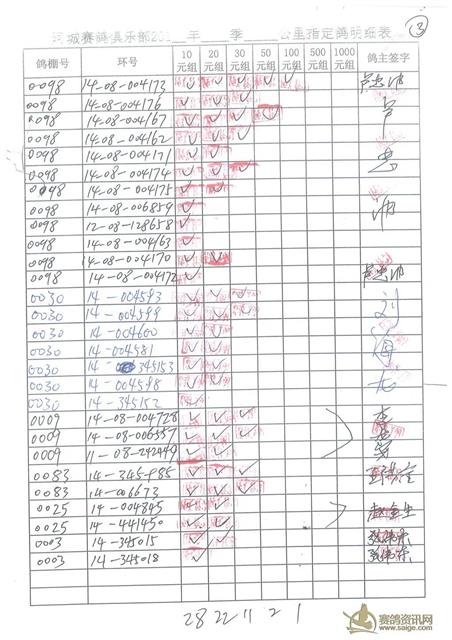 河城赛鸽俱乐部201__年__季____公里指定鸽明细表 ③
鸽棚号 环号 10元 20元 30元 50元 100元 500元 1000元 鸽主签字
0098 14-08-004173 ✓ ✓ ✓ ✓
0098 14-08-004176 ✓ ✓ ✓
0098 14-08-004167 ✓ ✓ ✓ ✓ 卢
0098 14-08-004162 ✓ ✓ ✓
0098 14-08-004171 ✓ ✓
0098 14-08-004174 ✓ ✓ ✓ 忠
0098 14-08-004175 ✓ ✓
0098 14-08-006859 ✓
0098 12-08-128658 ✓
0098 14-08-004163 ✓
0098 14-08-004170 ✓ ✓
0098 14-08-004172 ✓
0030 14-004593 ✓ ✓ ✓ 刘
0030 14-004599 ✓ ✓ ✓
0030 14-004600 ✓ ✓
0030 14-004581 ✓ ✓ 海
0030 14-345153 ✓ ✓
0030 14-004598 ✓ ✓ 龙
0030 14-345152 ✓
0009 14-08-004728 ✓ ✓ ✓ 李
0009 14-08-006557 ✓ ✓ ✓
0009 11-08-242449 ✓ ✓
0083 14-345985 ✓ ✓ ✓
0083 14-006673 ✓ ✓ ✓
0025 14-004845 ✓ ✓
0025 14-441450 ✓ ✓
0003 14-345015 ✓ ✓
0003 14-345018 ✓
28 22 11 2 1
赛鸽资讯网
www.saige.com